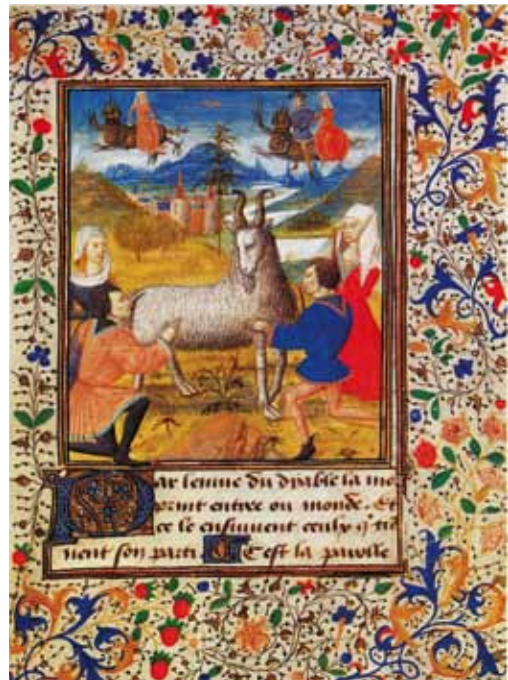 Par lenuie du dyable la mo
ort entree ou monde. Et
ce le ensuiuent ceulx q̃ ti
nent son parti C est la parolle